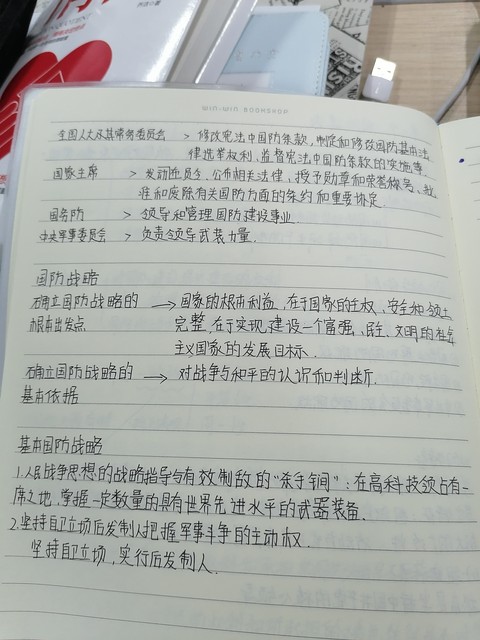 WIN-WIN BOOKSHOP
全国人大及其常务委员会 > 修改宪法中国防条款,制定和修改国防基本法
律选举权利,监督宪法中国防条款的实施等.
国家主席 > 发动任免令、公布相关法律,授予勋章和荣誉称号、批
准和废除有关国防方面的条约和重要协定.
国务防 > 领导和管理国防建设事业.
中央军事委员会 > 负责领导武装力量.
国防战略
确立国防战略的 → 国家的根本利益,在于国家的主权、安全和领土
根本出发点 完整,在于实现,建设一个富强、民主、文明的社会
主义国家的发展目标.
确立国防战略的 → 对战争与和平的认识和判断.
基本依据
基本国防战略
1.人民战争思想的战略指导与有效制敌的“杀手锏”:在高科技领占有一
席之地,掌握一定数量的具有世界先进水平的武器装备.
2.坚持自卫立场后发制人把握军事斗争的主动权.
坚持自卫立场,实行后发制人.